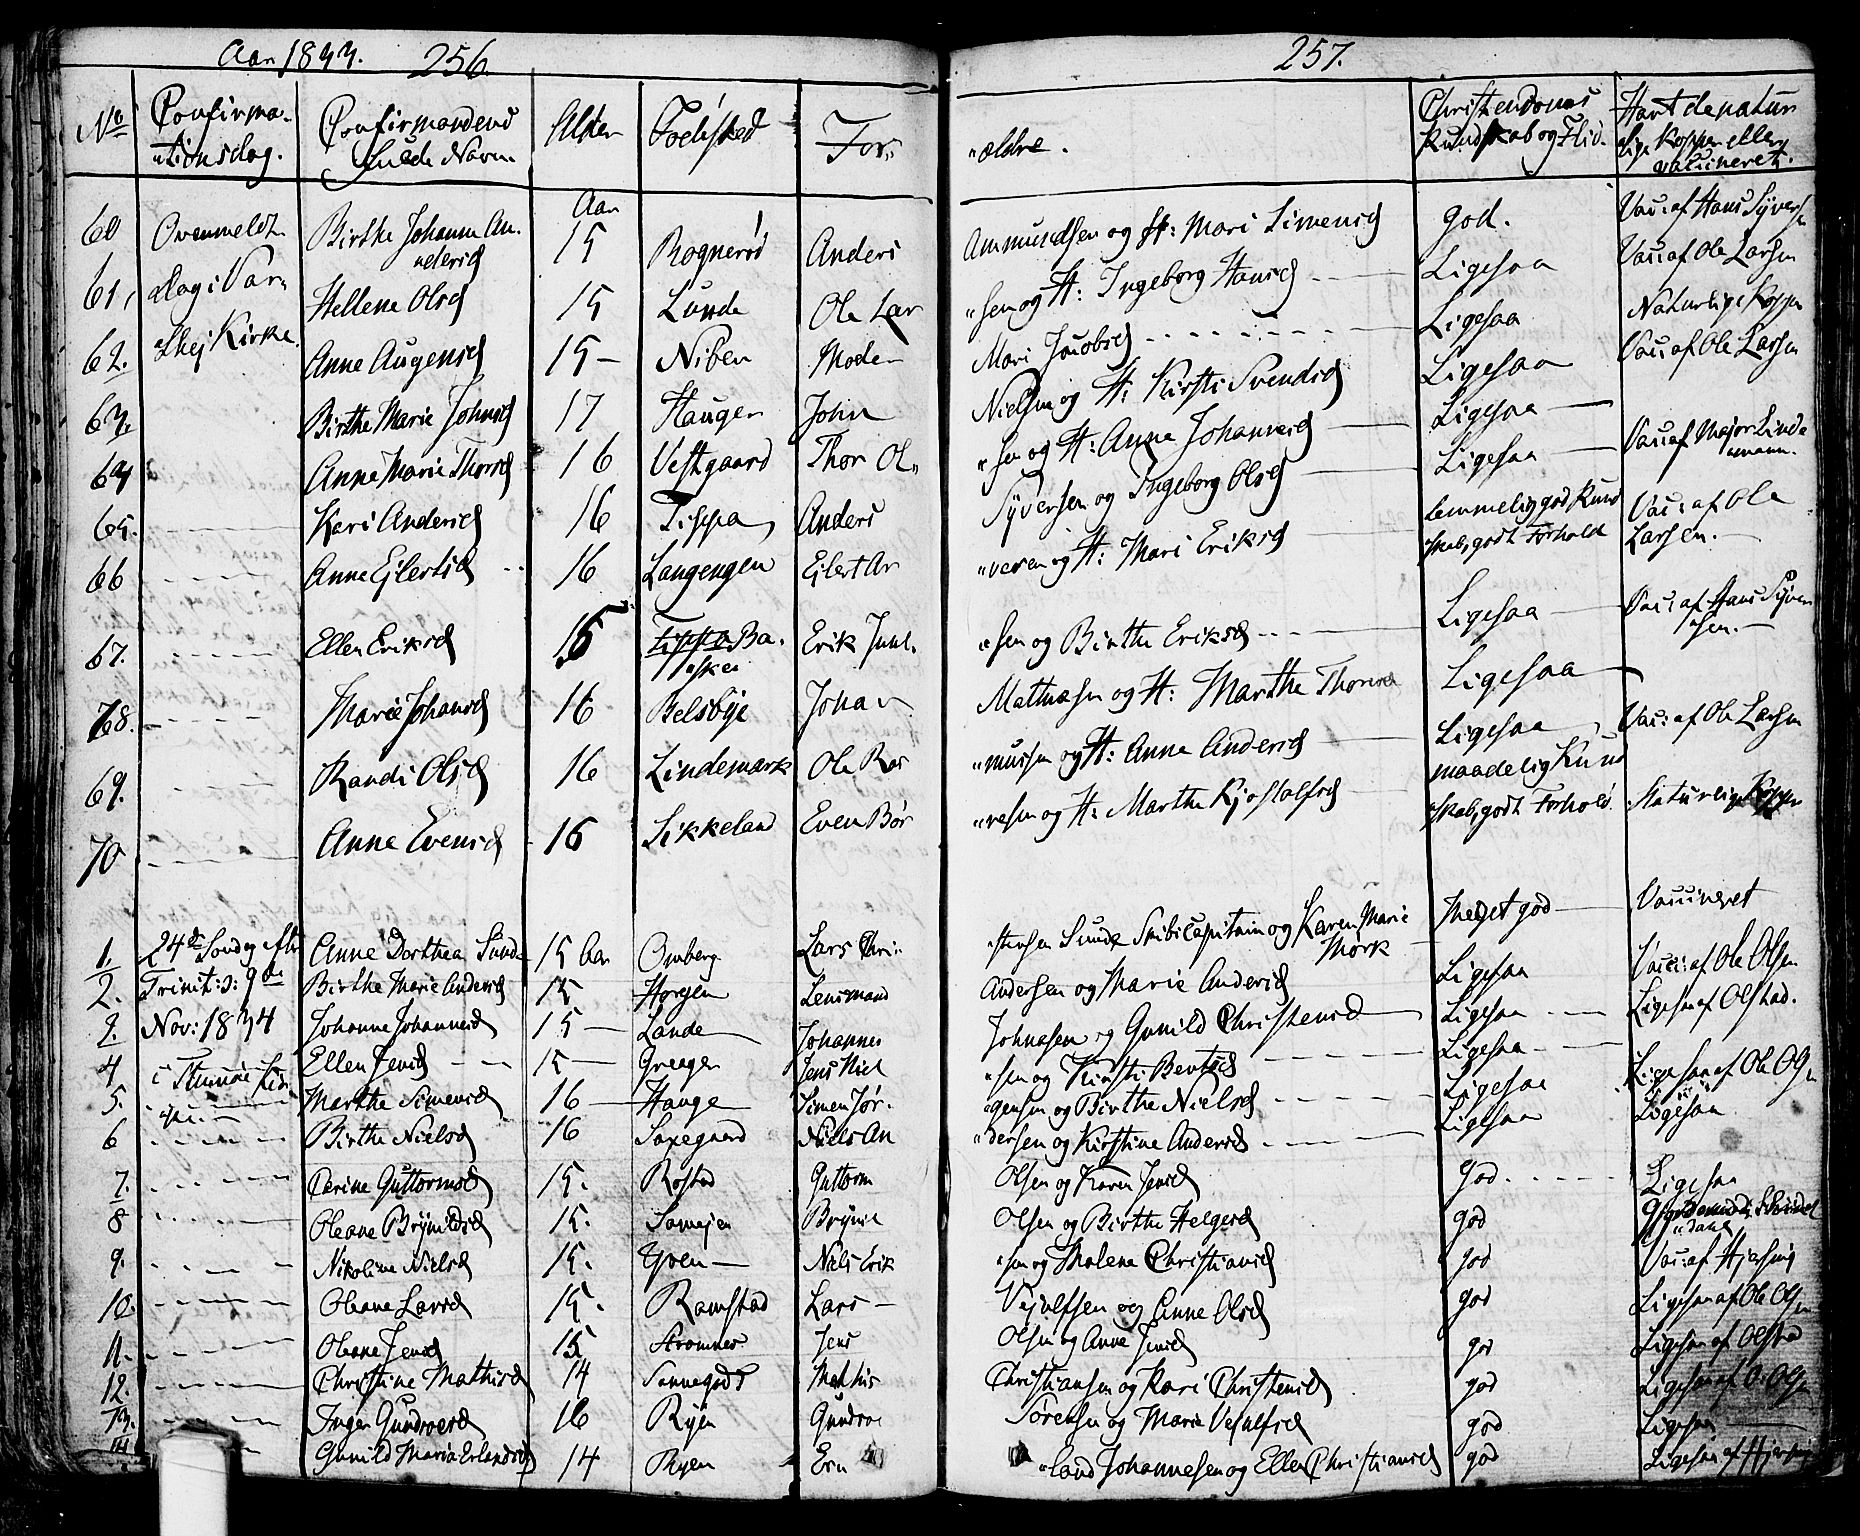 Aar 1833. 256.
No Confirma- Confirmandens Alder Fødested For-
"tionsdag. fulde Navn.
Aar
60 Ovenmeldte Birthe Johanne An- 15 Rognerød Anders
"dersd
61, Dag i Vaa- Hellene Olsd 15 Lunde Ole Lar
62. Kirke. Anne Augensd 15 - Niben Moder
63. Birthe Marie Johnsd 17 Haugen John
64 Anne Marie Thorsd 16 Vestgaard Thor Ol"
65. Kari Andersd 16 Tippa Anders
66 Anne Ejlertsd 16 Langengen Ejlert Ar
67. Ellen Eriksd 15 Tippa Ba- Erik
68. Marie Johansd 16 Belsbye Johan
69. Randi Olsd 16 Lindemark Ole Ras
70 Anne Evensd 16 Sikkeland Even Bør
1. 24de Søndag efter Anne Dorthea Sunde 15 Aar Omberg Lars Chri-
2. Trinit: d: 9de Birthe Marie Andersd 15 Horgen Lensmand
3. Nov: 1834 Johanne Johannesd 15 - Lande Johannes
4 i Ellen Jensd 15 - Greager Jens Niel
5. Marthe Simensd 16 Hauge Simen Jør-
6 Birthe Nielsd 16 Saxegaard Niels An
7. Karine Guttormsd 15. Rostad Guttorm
8 Oleane Brynildsd 15. Brynil
9. Nikoline Nielsd 15. Niels Erik
10. Oleane Larsd 15. Ramstad Lars -
11. Oleane Jensd 15 Strømnes Jens
12. Christine Mathisd 14 Sannegods Mathis
13. Inger Gundroesd 16 Ryen Gundroe
14 Gunild Maria Erlandsd 14 Ryen Er
257.
Christendoms Havt de natur
"ældre. Kundskab og Flid. "lige Kopper eller
vaccineret.
Ammundsen og H: Mari Simensd god. Vacc: af Hans Syvers
"sen og H: Ingeborg Hansd Ligesaa Vacc: af Ole Larsen
Mari Jacobsd Ligesaa Naturlige Kopper
Nielsen og H: Kirsti Svendsd Ligesaa Vacc: af Ole Larsen
"sen og H: Anne Johannesd Ligesaa
Syversen og Ingeborg Olsd Ligesaa Vacc: af Major Linde
"mann.
"veren og H: Mari Eriksd temmelig god Kund Vacc: af Ole
"skab, godt Forhold Larsen.
"sen og Birthe Eriksd Ligesaa Vacc: af Hans Syver
"sen.
og H: Marthe Thorsd Ligesaa
"mussen og H: Anne Andersd Ligesaa Vacc: af Ole Larsen
"resen og H: Marthe Kjostolfsd maadelig Kund
"skab, godt Forhold. Naturlige Kopper
"stensen Sunde Skibscapitain og Karen Marie Meget god Vaccineret
Mørk
Andersen og Marie Andersd Ligesaa Vacc: af Ole Olsen
Johnasen og Gunild Christensd Ligesaa Ligesaa af Olstad.
"sen og Kirsti Bentsd Ligesaa Ligesaa af Ole Olsen
"gensen og Birthe Nielsd Ligesaa Ligesaa
"dersen og Kirstine Andersd Ligesaa
Olsen og Karen Jensd god. Ligesaa
Olsen og Birthe Helgesd god
"sen og Malene Christiansd god Vacc: af
og Anne Olsd god Ligesaa af Ole Olsen
Olsen og Anne Jensd god Ligesaa af Olstad
Christiansen og Kari Christensd god Ligesaa af O. Olsen
Sørensen og Marie god Ligesaa
"land Johannesen og Ellen Christiansd god Ligesaa af